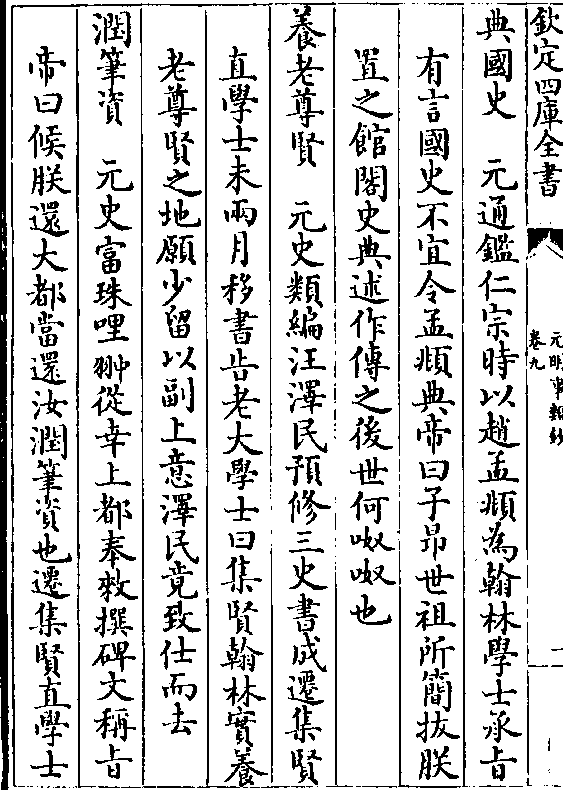 欽定四庫全書
元明事類鈔
卷九
典國史　元通鑑仁宗時以趙孟頫為翰林學士承旨
有言國史不宜令孟頫典帝曰子昂世祖所簡拔朕
置之館閣史典述作傳之後世何呶呶也
養老尊賢　元史類編汪澤民預修三史書成遷集賢
直學士未兩月移書告老大學士曰集賢翰林實養
老尊賢之地願少留以副上意澤民竟致仕而去
潤筆資　元史富珠哩翀從幸上都奉敕撰碑文稱旨
帝曰候朕還大都當還汝潤筆資也遷集賢直學士